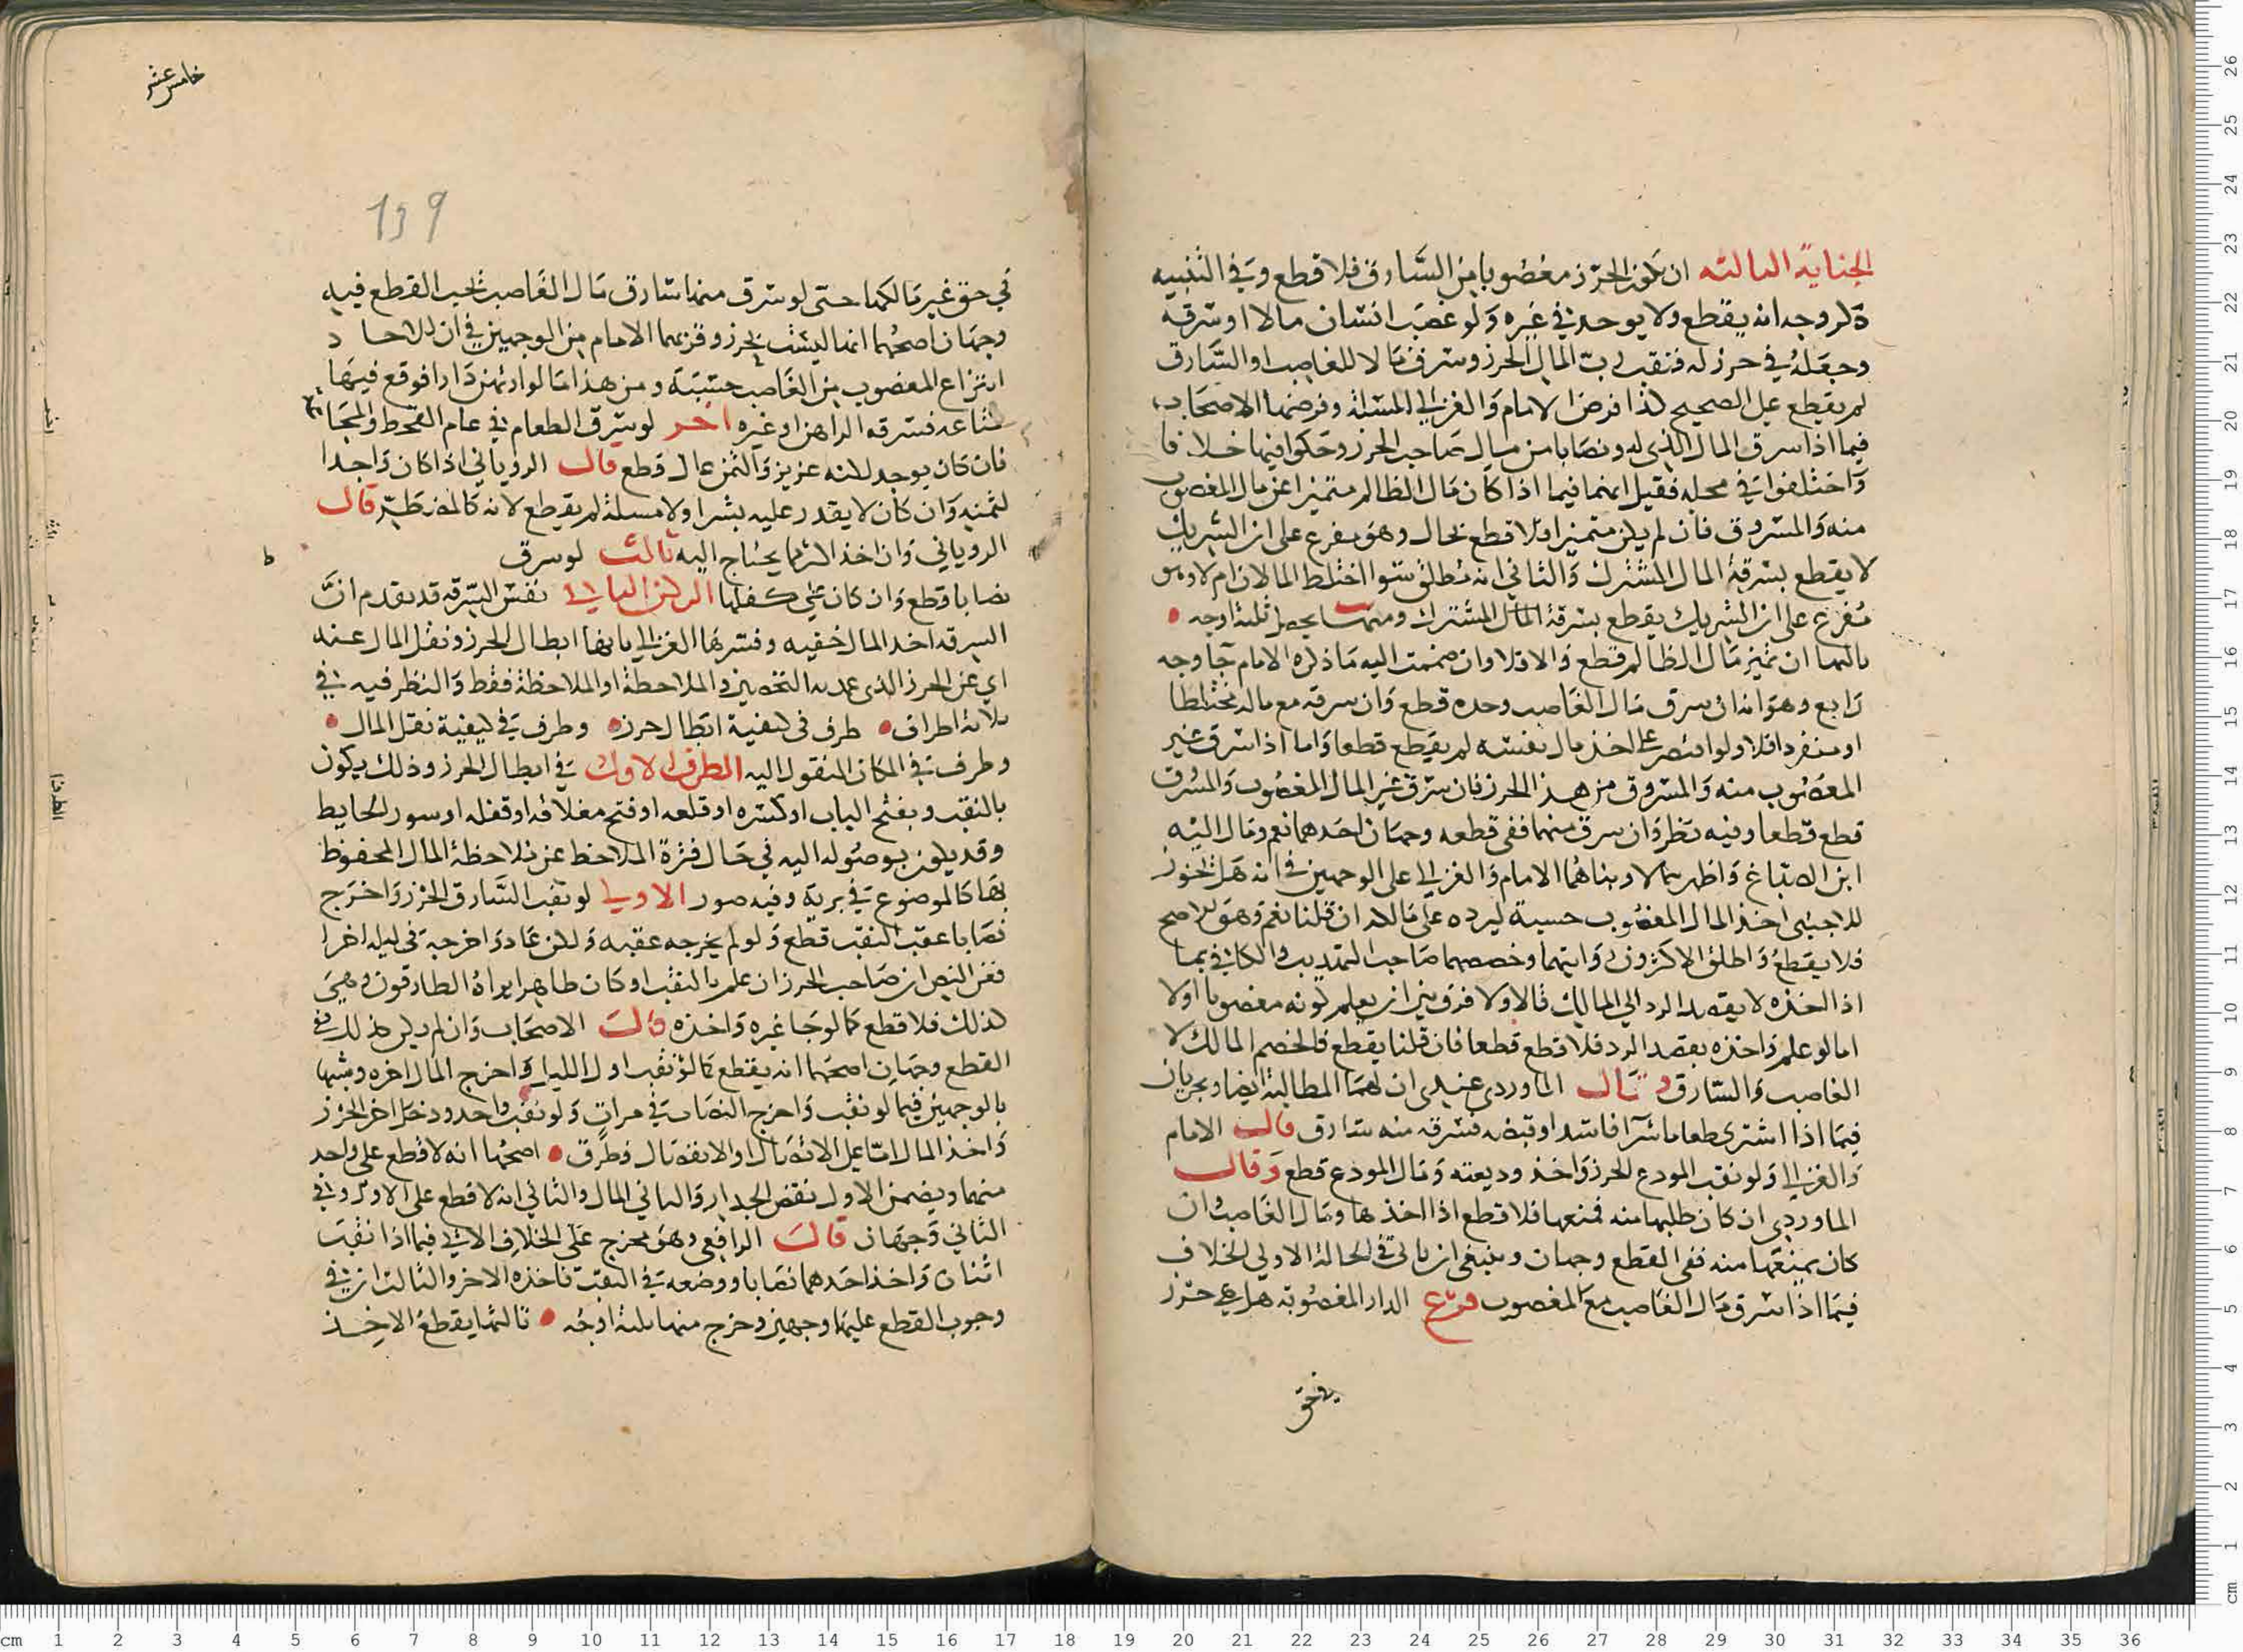 الجناية الثالثه ان يكون الحرز مغصوبا من السارق فلا قطع وفي التنبيه
ذكر وجه انه يقطع ولا يوجد في غيره ولو غصب انسان مالا او سرقه
وجعله في حرز له فنقب رب المال الحرز وسرق مالا للغاصب او السارق
لم يقطع على الصحيح كذا فرض الامام والغزالي المسئلة وفرضها الاصحاب
فيما اذا سرق المال الذي له ونصابا من مال صاحب الحرز وحكوا فيها خلافا
واختلفوا في محله فقيل انهما فيما اذا كان مال الظالم متميزا عن مال المغصوب
منه والمسروق فان لم يكن متميزا فلا قطع بحال وهو مفرع على ان الشريك
لا يقطع بسرقة المال المشترك والثاني انه مطلق سوا اختلط المالان ام لا وهو
مفرع على ان الشريك يقطع بسرقة المال المشترك ومنهما يحصل ثلثة اوجه
ثالثها ان تميز مال الظالم قطع والا فلا وان ضممت اليه ما ذكره الامام جا وجه
رابع وهو انه ان سرق مال الغاصب وحده قطع وان سرقه مع ماله مختلطا
او منفردا فلا ولو اقتصر على اخذ مال نفسه لم يقطع قطعا واما اذا سرق غير
المغصوب منه والمسروق من هذا الحرز فان سرق غير المال المغصوب والمسرق
قطع قطعا وفيه نظر وان سرق منهما ففي قطعه وجهان احدهما نعم ومال اليه
ابن الصباغ واظهرهما لا وبناهما الامام والغزالي على الوجهين في انه هل يجوز
للاجنبي اخذ المال المغصوب حسبة ليرده على مالكه ان قلنا نعم وهو الاصح
فلا يقطع واطلق الاكثرون وايتهما وخصهما صاحب التهذيب والكافي بما
اذا اخذه لا بقصد الرد الي المالك قالا ولا فرق بين ان يعلم كونه مغصوبا اولا
اما لو علم واخذه بقصد الرد فلا قطع قطعا فان قلنا يقطع فالخصم المالك لا
الغاصب والسارق وقال الماوردي عندي ان لهما المطالبة ايضا ويجريان
فيما اذا اشترى طعاما شرا فاسدا وقبضه فسرقه منه سارق قال الامام
والغزالي ولو نقب المودع الحرز واخذ وديعته ومال المودع قطع وقال
الماوردي ان كان طلبها منه فمنعها فلا قطع اذا اخذها ومال الغاصب وان
كان يمنعها منه ففي القطع وجهان وينبغي ان ياتي في الحالة الاولي الخلاف
فيما اذا سرق مال الغاصب مع المغصوب فرع الدار المغصوبة هل هي حرز
في حق
خامس عشر
139
في حق غير مالكها حتى لو سرق منها سارق مال الغاصب يجب القطع فيه
وجهان اصحهما انها ليست بحرز وقربهما الامام من الوجهين في ان للاحاد
انتزاع المغصوب من الغاصب حسبة ومن هذا ما لو ارتهن دارا فوقع فيها
متاعه فسرقه الراهن او غيره اخر لو سرق الطعام في عام القحط والمجا
فان كان يوجد لكنه عزيز والثمن عال قطع قال الروياني اذا كان واجدا
لثمنه وان كان لا يقدر عليه بشرا ولا مسئلة لم يقطع لانه كالمضطر قال
الروياني وان اخذ اكثر مما يحتاج اليه ثالث لو سرق
نصابا قطع وان كان على كفلها الركن الثاني نفس السرقة قد تقدم ان
السرقه اخذ المال خفيه وفسرها الغزالي بانها ابطال الحرز ونقل المال عنه
اي عن الحرز الذي عمدته التحصين والملاحظة او الملاحظة فقط والنظر فيه في
ثلاثة اطراف طرف في كيفية ابطال حرزه وطرف في كيفية نقل المال
وطرف في المكان المنقول اليه الطرف الاول في ابطال الحرز وذلك يكون
بالنقب وبفتح الباب او كسره او قلعه او فتح مغلاقه او قفله او سور الحايط
وقد يكون بوصوله اليه في حال فترة الملاحظ عن ملاحظة المال المحفوظ
بها كالموضوع في برية وفيه صور الاولي لو نقب السارق الحرز واخرج
نصابا عقب النقب قطع ولو لم يخرجه عقبه ولكن عاد واخرجه في ليله اخرا
فعن النص ان صاحب الحرز ان علم بالنقب او كان ظاهرا يراه الطارقون وهي
كذلك فلا قطع كما لو جا غيره واخذه قال الاصحاب وان لم يكن كذلك ففي
القطع وجهان اصحهما انه يقطع كما لو نقب اول الليل واخرج المال اخره وشبها
بالوجهين فيما لو نقب واخرج النصاب في مرات ولو نقب واحد ودخل اخر الحرز
واخذ المال اما على الاتصال او الانفصال فطرق اصحها انه لا قطع على واحد
منهما ويضمن الاول نقض الجدار والثاني المال والثاني انه لا قطع على الاول وفي
الثاني وجهان قال الرافعي وهو مخرج على الخلاف الاتي فيما اذا نقب
اثنان واخذ احدهما نصابا ووضعه في النقب فاخذه الاخر والثالث ان في
وجوب القطع عليهما وجهين وخرج منهما ثلثة اوجه ثالثها يقطع الاخذ